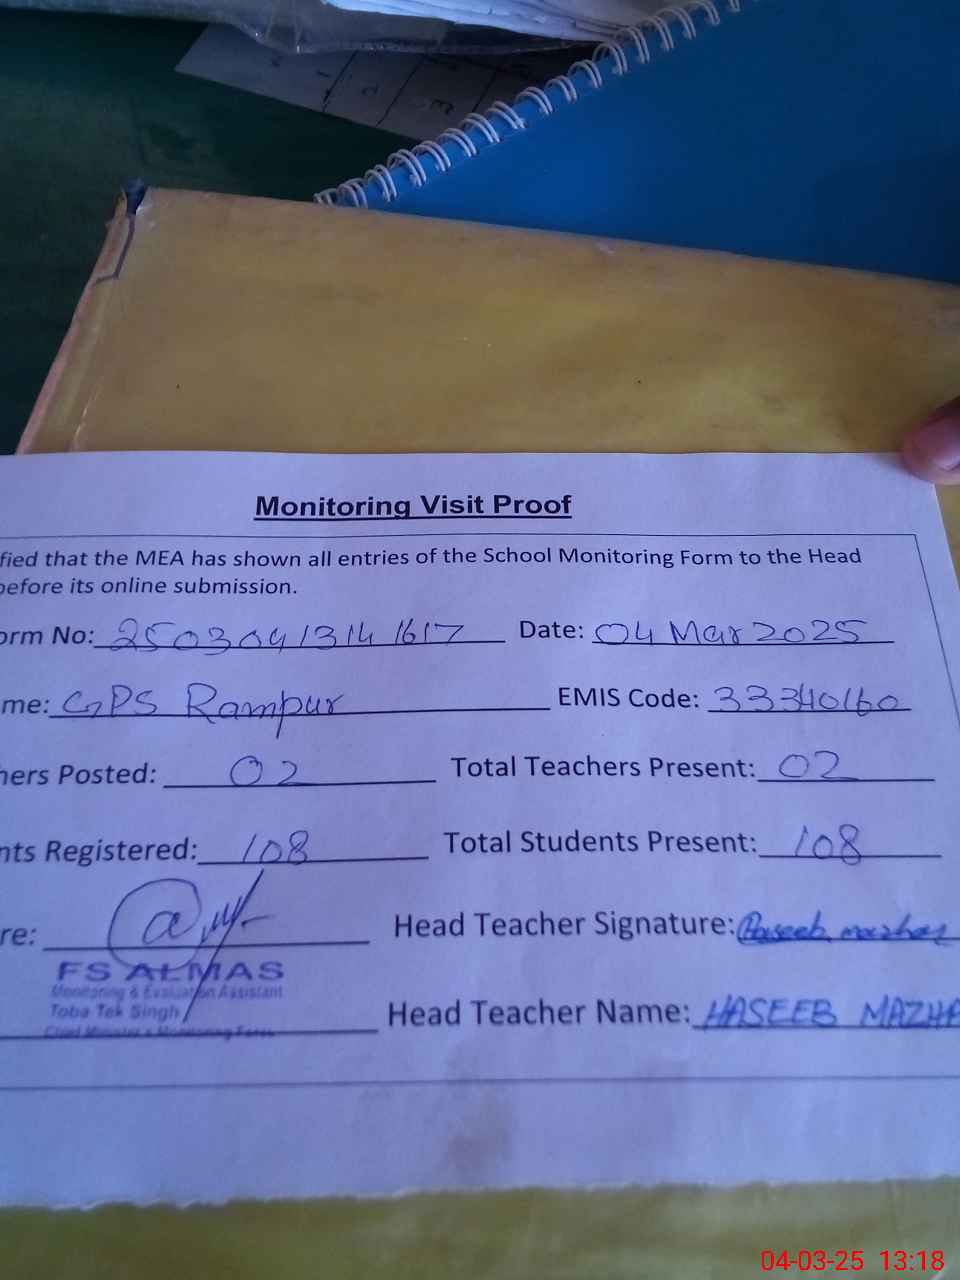 1
2
3
Monitoring Visit Proof
fied that the MEA has shown all entries of the School Monitoring Form to the Head
before its online submission.
orm No: 2503041314 1617 Date: 04 Mar 2025
me: GPS Rampur EMIS Code: 33340160
hers Posted: 02 Total Teachers Present: 02
nts Registered: 108 Total Students Present: 108
re: Head Teacher Signature: Haseeb mazhar
FS ALMAS
Monitoring & Evaluation Assistant
Toba Tek Singh
Chief Minister's Monitoring Force
Head Teacher Name: HASEEB MAZHA
04-03-25 13:18